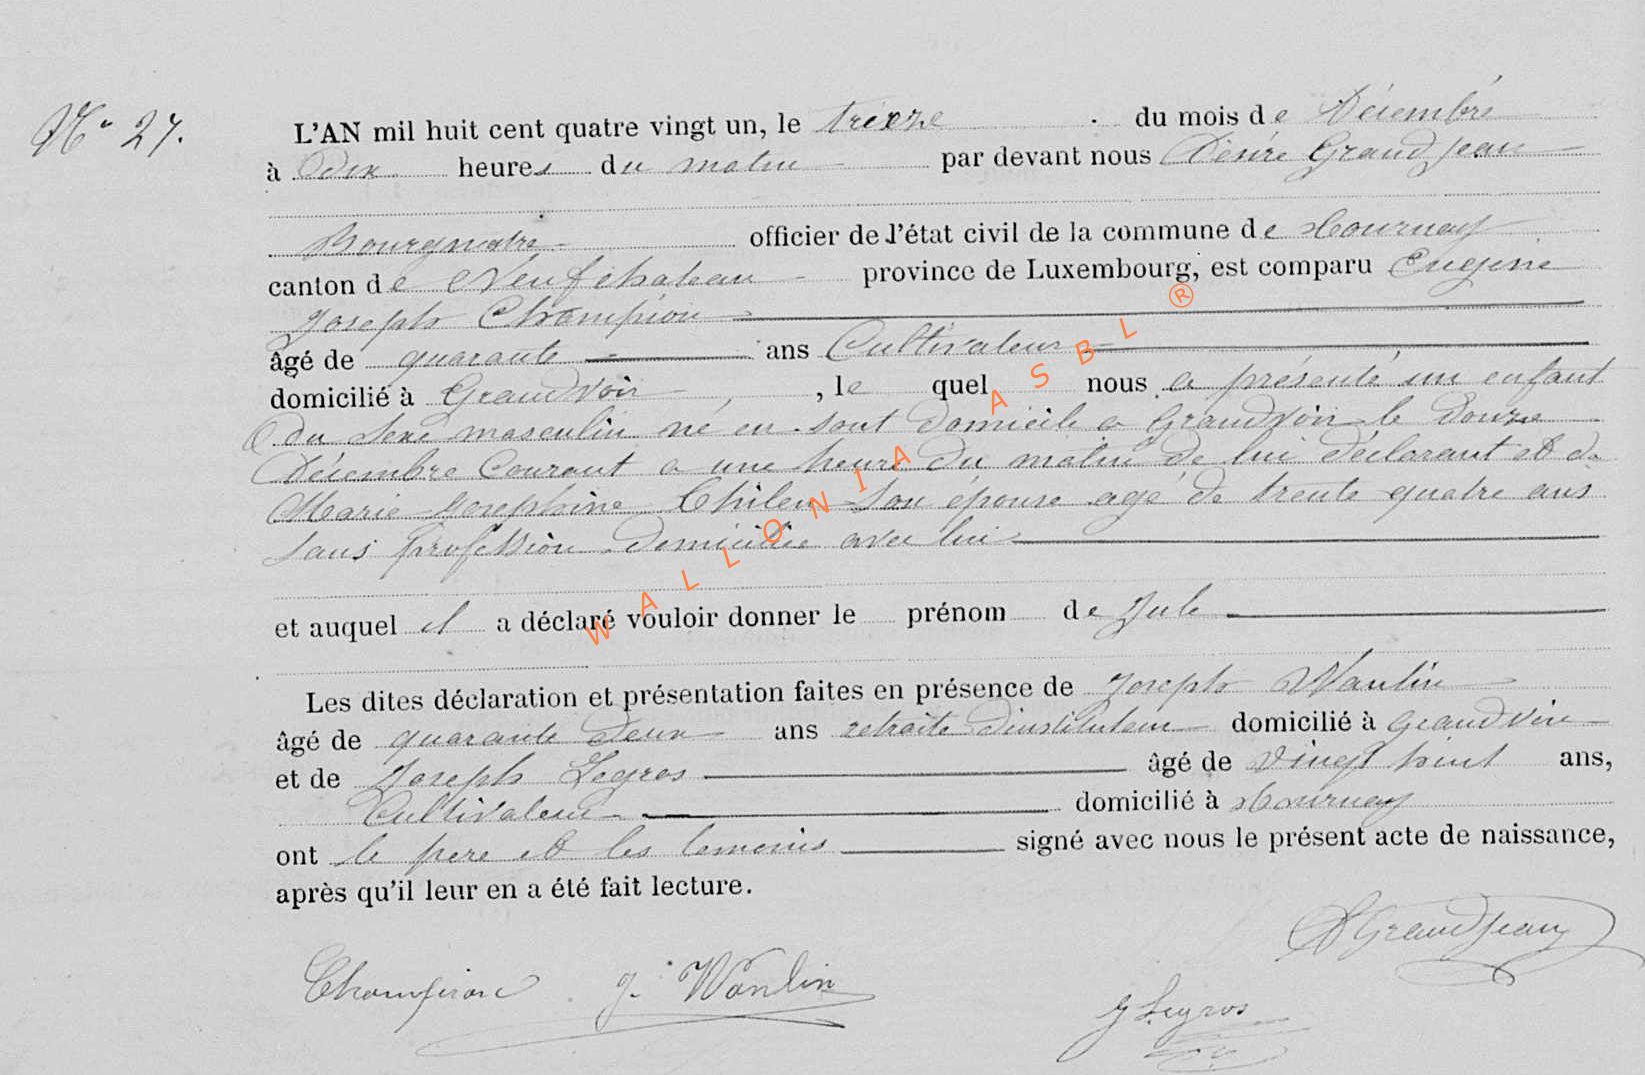 N° 27.
L'AN mil huit cent quatre vingt un, le treize du mois de Décembre
à Dix heures du matin par devant nous Désiré Grandjean
Bourgmestre officier de l'état civil de la commune de Tournay
canton de Neufchateau province de Luxembourg, est comparu Eugene
Joseph Champion
âgé de quarante ans Cultivateur
domicilié à Grandvoir, le quel nous a présenté un enfant
du Sexe masculin né en sont domicile a Grandvoir le Douze
Décembre Courant a une heure du matin de lui déclarant et de
Marie Josephine Son épouse agé de trente quatre ans
Sans profession domiciliée avec lui
et auquel il a déclaré vouloir donner le prénom de Jule
Les dites déclaration et présentation faites en présence de Joseph Wanlin
âgé de quarante Deux ans retraite d'instituteur domicilié à Grandvoir
et de Joseph Legros âgé de Vingt huit ans,
Cultivateur domicilié à Tournay
ont le pere et les temoins signé avec nous le présent acte de naissance,
après qu'il leur en a été fait lecture.
DGrandjean
Champion J. Wanlin
J Legros
WALLONIA ASBL ®